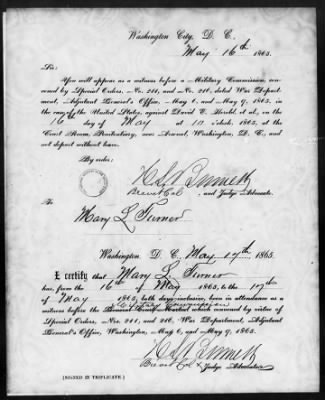 Washington City, D. C.
May 16th 1865.
Sir:
You will appear as a witness before a Military Commission, con-
vened by Special Orders, No. 211, and No. 216, dated War Depart-
ment, Adjutant General's Office, May 6, and May 9, 1865, in
the case of the United States, against David E. Herold, et al., on the
16th day of May at 10 o'clock, 1865, at the
Court Room, Penitentiary, near Arsenal, Washington, D. C., and
not depart without leave.
By order:
H L Burnett
Brevet Col and Judge Advocate.
To
Mary L Turner
Washington, D. C. May 17th, 1865.
I certify that Mary L. Turner
has, from the 16th of May 1865, to the 17th
of May 1865, both days inclusive, been in attendance as a
Military Commission
witness before the General Court Martial which convened by virtue of
Special Orders, Nos. 211, and 216, War Department, Adjutant
General's Office, Washington, May 6, and May 9, 1865.
H L Burnett
Brevet Col & Judge Advocate
[SIGNED IN TRIPLICATE.]